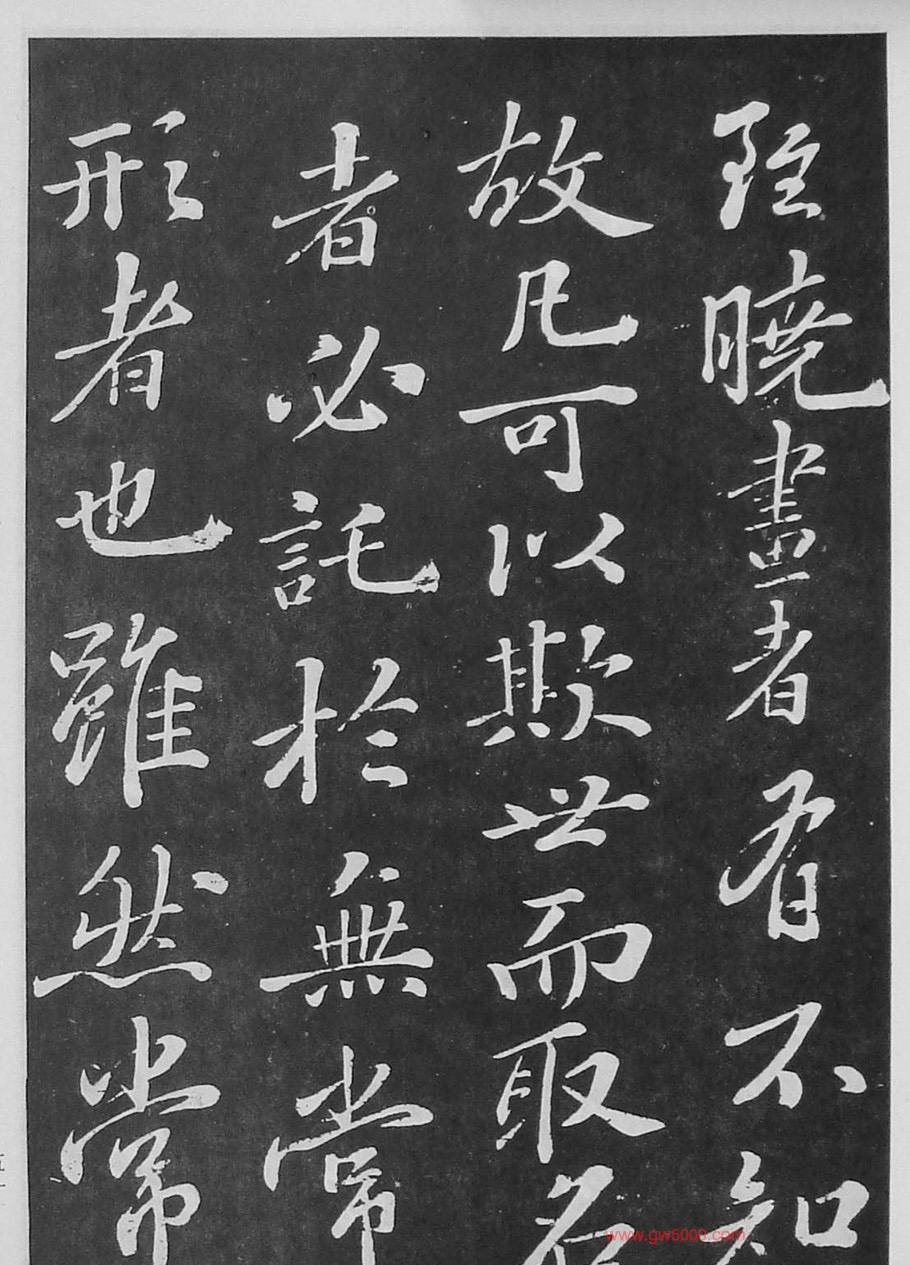 雖曉畫者有不知
故凡可以欺世而取名
者必託於無常
形者也雖然常
www.gw5000.com